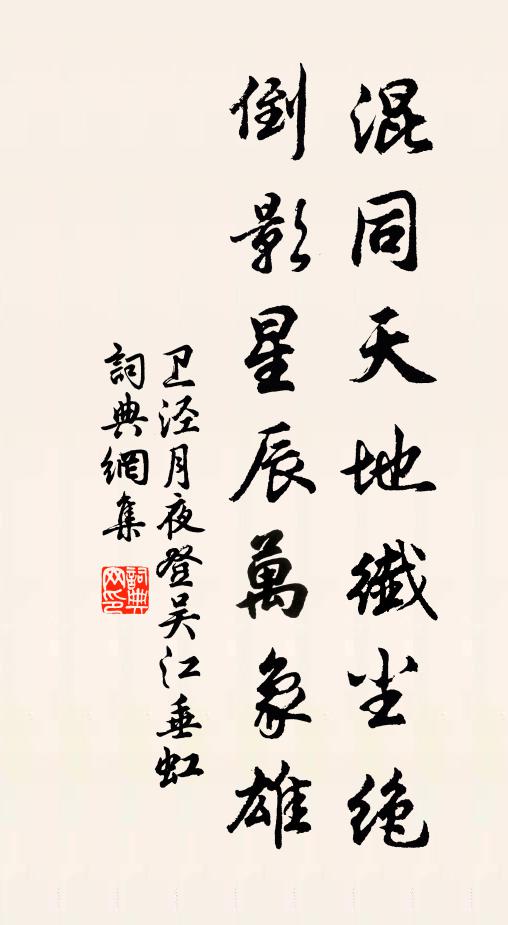 混同天地纖尘绝
倒影星辰萬象雄
卫泾月夜登吴江垂虹
詞典網集
詞典网印